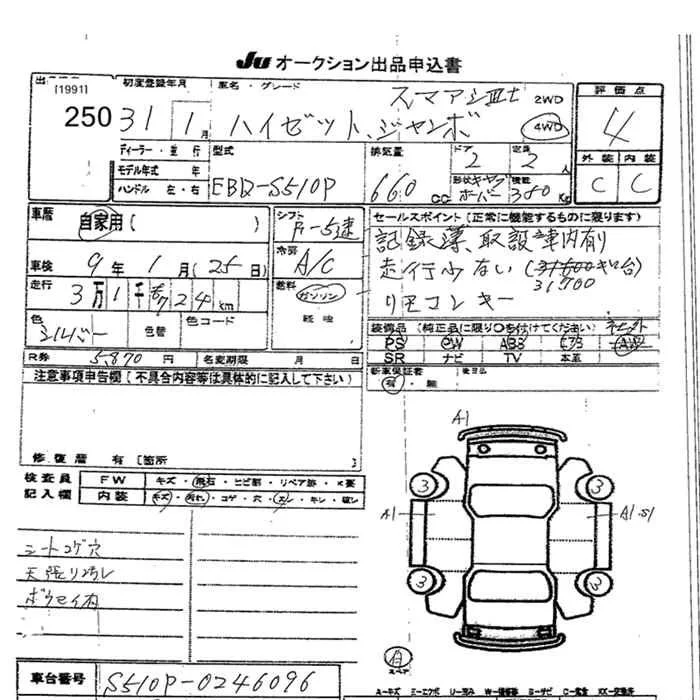 JU オークション出品申込書
出
[1991]
250
初度登録年月
31 1月
車名・グレード
スマアシⅢt 2WD
ハイゼット、ジャンボ 4WD
評価点
4
外装 内装
C C
ディーラー・並行
モデル年式 年
ハンドル 左・右
型式
EBD-S510P
排気量
660 cc
ドア
2
定員
2 人
形状 キャブオーバー
積載 350 Kg
車歴
自家用( )
シフト
F-5速
車検
9年 1月(25日)
冷房
A/C
走行
3万1千 724 km
燃料
ガソリン
軽油
色
シルバー
色替
色コード
セールスポイント(正常に機能するものに限ります)
記録簿、取説車内有
走行少ない(31600キロ台)
31,700
リモコンキー
R券 5,870円 名変期限 月 日
装備品(純正品に限り○を付けてください)
PS PW ABS エアB AW
SR ナビ TV 本革
新車保証書
有・無
後日払
注意事項申告欄(不具合内容等は具体的に記入して下さい)
修復歴 有 [箇所 ]
検査員
記入欄
FW キズ・飛石・ヒビ割・リペア跡・X要
内装 キズ・汚れ・コゲ・穴・スレ・キレ・破レ
シートコゲ穴
天張り汚レ
ボウセイ有
A1
3 3
A1 A1・S1
3 3
スペア
車台番号 S510P-0246096
A=キズ U=エクボ